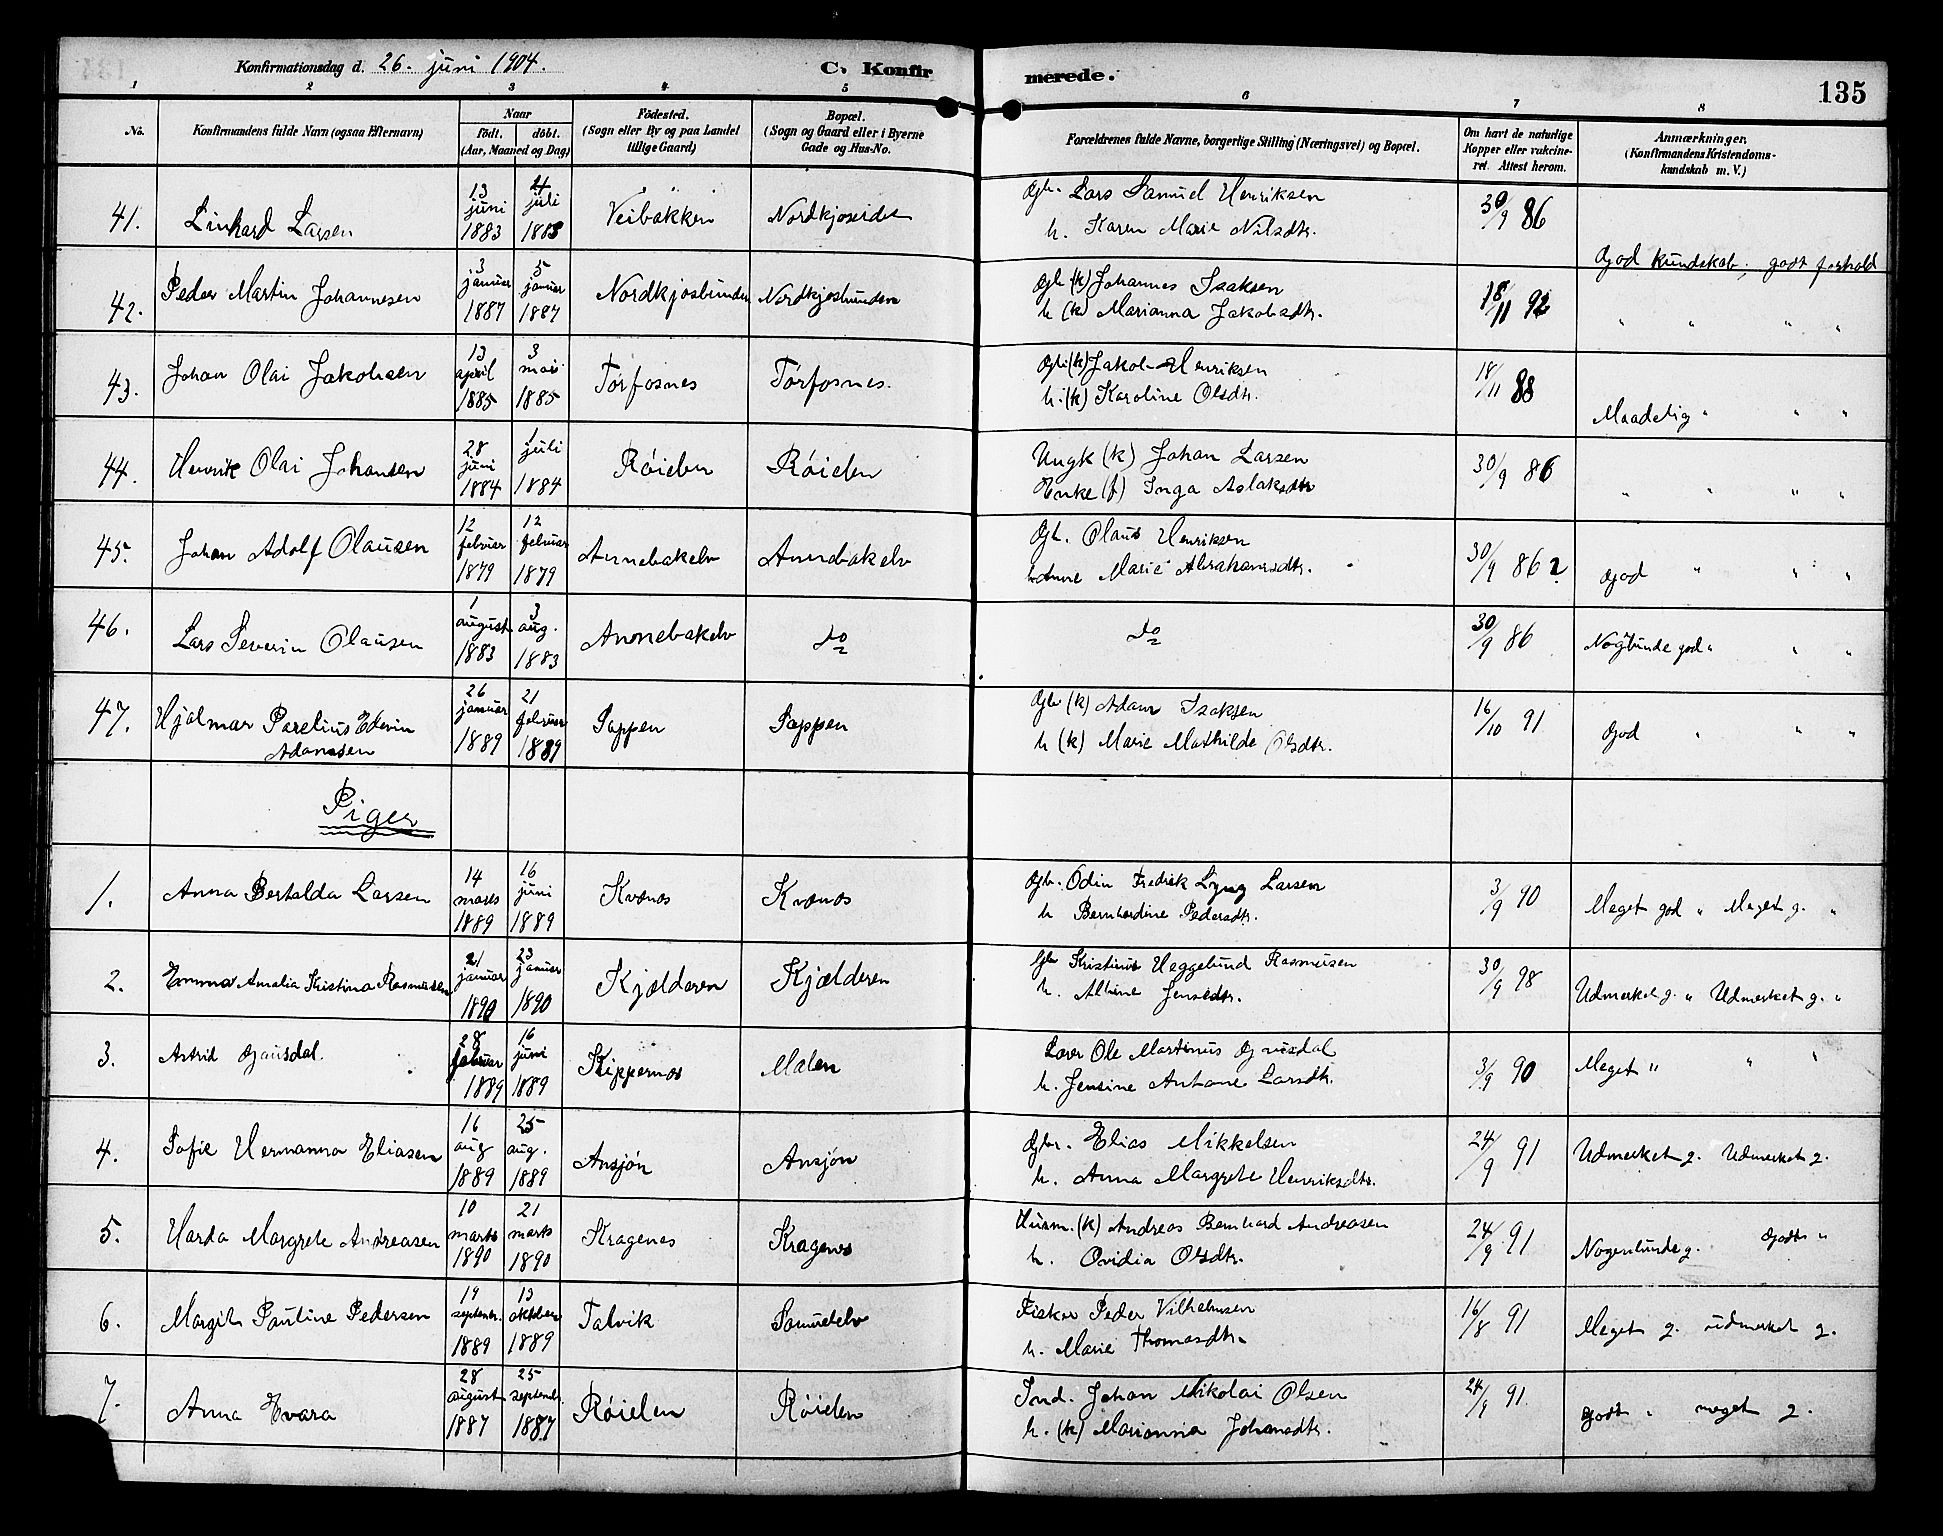 Konfirmationsdag d. 26. juni 1904. C. Konfirmerede. 135
1 2 3 4 5 6 7 8
No. Konfirmandens fulde Navn (ogsaa Efternavn) Naar födt. döbt. (Aar, Maaned og Dag) Födested. (Sogn eller By og paa Landet tillige Gaard) Bopæl. (Sogn og Gaard eller i Byerne Gade og Hus-No. Forældrenes fulde Navne, borgerlige Stilling (Næringsvei) og Bopæl. Om havt de naturlige Kopper eller vakcineret. Attest herom. Anmærkninger. (Konfirmandens Kristendomskundskab m. V.)
41. Linhard Larsen 13 juni 1883 juli 1883 Veibakken Nordkjoseidet Gbr. Lars Samuel Henriksen
h. Karen Marie Nilsdtr. 30/9 86 God kundskab, godt forhold
42. Peder Martin Johannesen 3 januar 1887 5 januar 1887 Nordkjosbunden Nordkjosbunden Gbr (k) Johannes Isaksen
h (k) Marianna Jakobsdtr. 18/11 92 " " " "
43. Johan Olai Jakobsen 13 april 1885 3 mai 1885 Torfosnes Torfosnes. Gbr (k) Jakob Henriksen
h. (k) Karoline Olsdtr. 18/11 88 Maadelig " " "
44. Henrik Olai Johansen 28 juni 1884 juli 1884 Röielen Röielen Ungk (k) Johan Larsen
Enke (f) Inga Aslaksdtr 30/9 86 " " " "
45. Johan Adolf Olausen 12 februar 1879 12 februar 1879 Annebakelv Annebakelv Gbr. Olaus Henriksen
h. Anne Marie Abrahamsdtr. 30/9 86? God " " "
46. Lars Severin Olausen 1 august 1883 3 aug. 1883 Annebakelv do do 30/9 86 Nogl. unde god " " "
47. Hjalmar Parelius Edevin Adamsen 26 januar 1889 21 februar 1889 Sappen Sappen Gbr (k) Adam Isaksen
h (k) Marie Mathilde Olsdtr. 16/10 91 God " " "
Piger
1. Anna Bertalda Larsen 14 marts 1889 16 juni 1889 Kvænes Kvænes Gbr. Odin Fredrik Lyng Larsen
h Bernhardine Pedersdtr. 3/9 90 Meget god " Meget g. "
2. Emma Amalia Kristina Rasmussen 21 januar 1890 23 januar 1890 Kjælderen Kjælderen Gbr Kristinus Heggelund Rasmusen
h. Albine Jensdtr. 30/9 98 Udmerket g. " Udmerket g. "
3. Astrid Gausdal. 28 februar 1889 16 juni 1889 Skippernes Malen Lærer Ole Martinus Gausdal
h. Jensine Antone Larsdtr. 3/9 90 Meget " " "
4. Sofie Hermanna Eliasen 16 aug 1889 25 aug. 1889 Ansjön Ansjön Gbr. Elias Mikkelsen
h. Anna Margrete Henriksdtr. 24/9 91 Udmerket g. Udmerket g.
5. Harda Margrete Andreasen 10 marts 1890 21 marts 1890 Kragenes Kragenes Husm. (k) Andreas Bernhard Andreasen
h. Ovidia Olsdtr. 24/9 91 Nogenlunde g. Godt "
6. Margit Pauline Pedersen 19 septembr. 1889 13 oktober 1889 Talvik Samuelelv Fisker Peder Vilhelmsen
h. Marie Thomasdtr. 16/8 91 Meget g. udmerket g.
7. Anna Evara 28 august 1887 25 septembr. 1887 Röielen Röielen Ind. Johan Nikolai Olsen
h. (k) Marianna Johansdtr. 24/9 91. Godt " meget g.